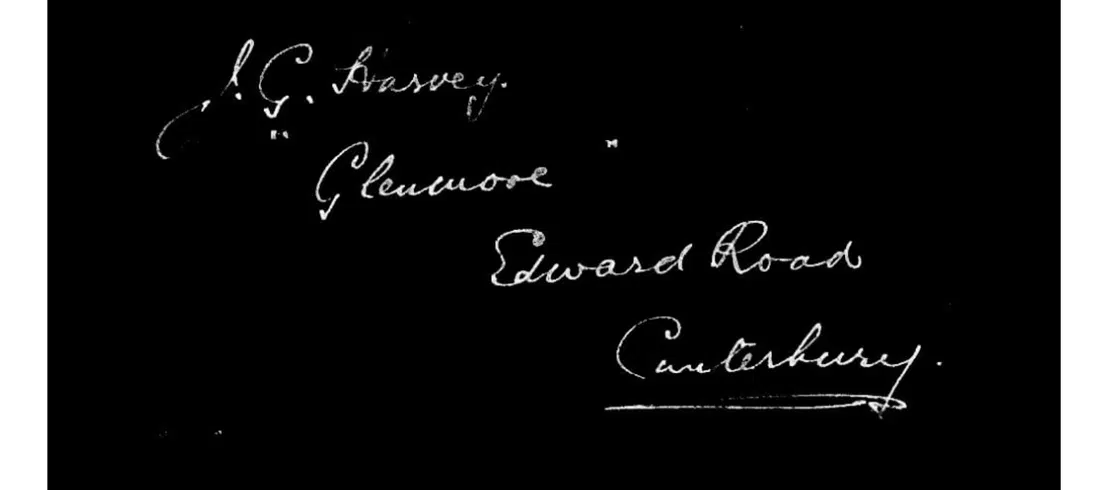 J. G. Harvey.
"Glenmore"
Edward Road
Canterbury.